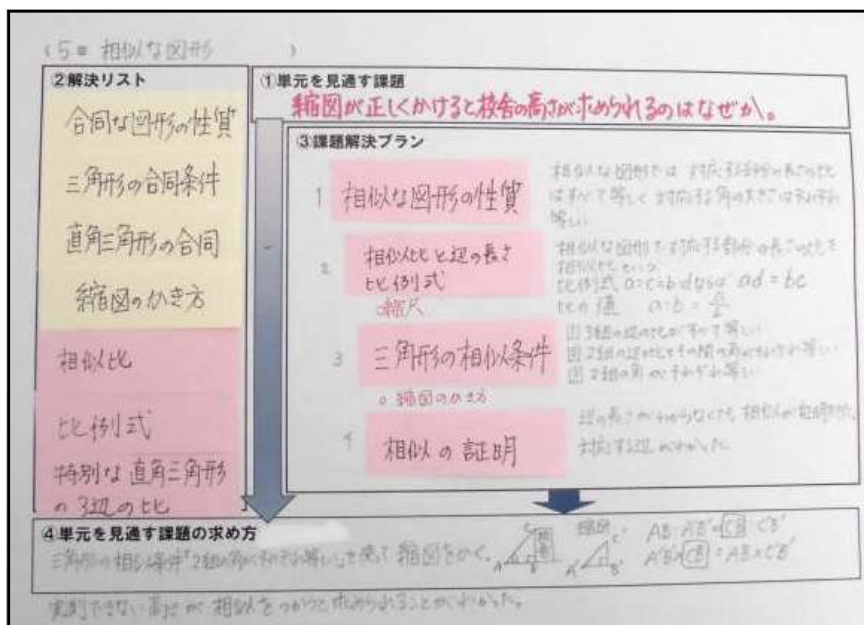 (5章 相似な図形 )
②解決リスト
合同な図形の性質
三角形の合同条件
直角三角形の合同
縮図のかき方
相似比
比例式
特別な直角三角形
の3辺の比
①単元を見通す課題
縮図が正しくかけると校舎の高さが求められるのはなぜか。
③課題解決プラン
1 相似な図形の性質
相似な図形では 対応する部分の長さの比
はすべて等しく 対応する角の大きさはそれぞれ
等しい
2 相似比と辺の長さ
比例式
○縮尺
相似な図形で対応する部分の長さの比を
相似比という
比例式 ad = bc
比の値 a:b = a/b
3 三角形の相似条件
○縮図のかき方
① 3組の辺の比がすべて等しい
② 2組の辺の比とその間の角がそれぞれ等しい
③ 2組の角がそれぞれ等しい
4 相似の証明
辺の長さがわからなくても 相似が証明
対応する辺がわかった。
④単元を見通す課題の求め方
三角形の相似条件"2組の角がそれぞれ等しい"を使って 縮図をかく。
A B C 校舎
縮図 A' B' C'
AB:A'B'=CB:C'B'
A'B'×CB=AB×C'B'
実測できない高さが 相似をつかうと求められることがわかった。